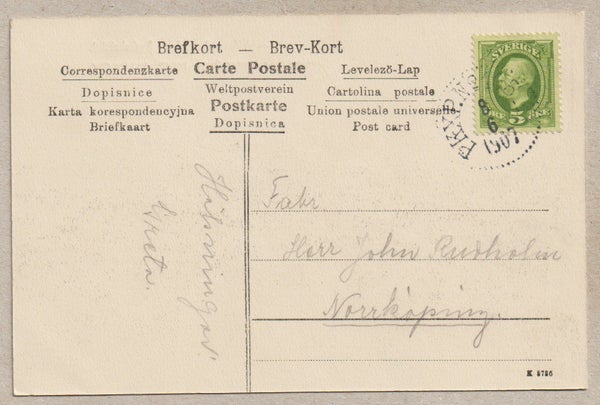 Brefkort — Brev-Kort
Correspondenzkarte Carte Postale Levelező-Lap
Dopisnice Weltpostverein Cartolina postale
Karta korespondencyjna Postkarte Union postale universelle
Briefkaart Dopisnica Post card
SVERIGE
5
ÖRE
PKXP.
8
6
1907
Hälsningar
Greta.
Fabr
Herr John Rudholm
Norrköping.
K 8786